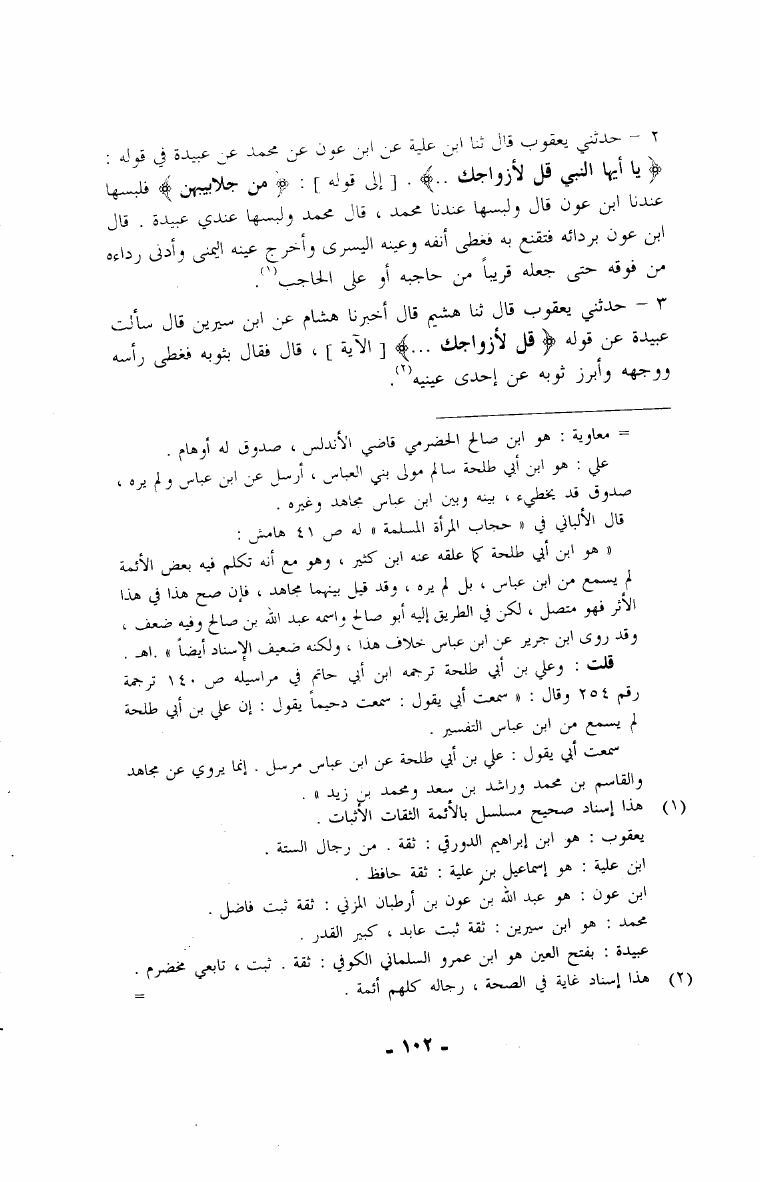 ٢ – حدثني يعقوب قال ثنا ابن علية عن ابن عون عن محمد عن عبيدة في قوله :
﴿ يا أيها النبي قل لأزواجك ..﴾ . [ إلى قوله ] : ﴿ من جلابيبهن ﴾ فلبسها
عندنا ابن عون قال ولبسها عندنا محمد ، قال محمد ولبسها عندي عبيدة . قال
ابن عون بردائه فتقنع به فغطى أنفه وعينه اليسرى وأخرج عينه اليمنى وأدنى رداءه
من فوقه حتى جعله قريباً من حاجبه أو على الحاجب(١).
٣ – حدثني يعقوب قال ثنا هشيم قال أخبرنا هشام عن ابن سيرين قال سألت
عبيدة عن قوله ﴿ قل لأزواجك ...﴾ [ الآية ] ، قال فقال بثوبه فغطى رأسه
ووجهه وأبرز ثوبه عن إحدى عينيه(٢).
= معاوية : هو ابن صالح الحضرمي قاضي الأندلس ، صدوق له أوهام .
علي : هو ابن أبي طلحة سالم مولى بني العباس ، أرسل عن ابن عباس ولم يره ،
صدوق قد يخطيء ، بينه وبين ابن عباس مجاهد وغيره .
قال الألباني في « حجاب المرأة المسلمة » له ص ٤١ هامش :
« هو ابن أبي طلحة كما علقه عنه ابن كثير ، وهو مع أنه تكلم فيه بعض الأئمة
لم يسمع من ابن عباس ، بل لم يره ، وقد قيل بينهما مجاهد ، فإن صح هذا في هذا
الأثر فهو متصل ، لكن في الطريق إليه أبو صالح واسمه عبد الله بن صالح وفيه ضعف ،
وقد روى ابن جرير عن ابن عباس خلاف هذا ، ولكنه ضعيف الإسناد أيضاً » .اهـ .
قلت : وعلي بن أبي طلحة ترجمه ابن أبي حاتم في مراسيله ص ١٤٠ ترجمة
رقم ٢٥٤ وقال : « سمعت أبي يقول : سمعت دحيماً يقول : إن علي بن أبي طلحة
لم يسمع من ابن عباس التفسير .
سمعت أبي يقول : علي بن أبي طلحة عن ابن عباس مرسل . إنما يروي عن مجاهد
والقاسم بن محمد وراشد بن سعد ومحمد بن زيد » .
(١) هذا إسناد صحيح مسلسل بالأئمة الثقات الأثبات .
يعقوب : هو ابن إبراهيم الدورقي : ثقة . من رجال الستة .
ابن علية : هو إسماعيل بن علية : ثقة حافظ .
ابن عون : هو عبد الله بن عون بن أرطبان المزني : ثقة ثبت فاضل .
محمد : هو ابن سيرين : ثقة ثبت عابد ، كبير القدر .
عبيدة : بفتح العين هو ابن عمرو السلماني الكوفي : ثقة . ثبت ، تابعي مخضرم .
(٢) هذا إسناد غاية في الصحة ، رجاله كلهم أئمة . =
- ١٠٢ -